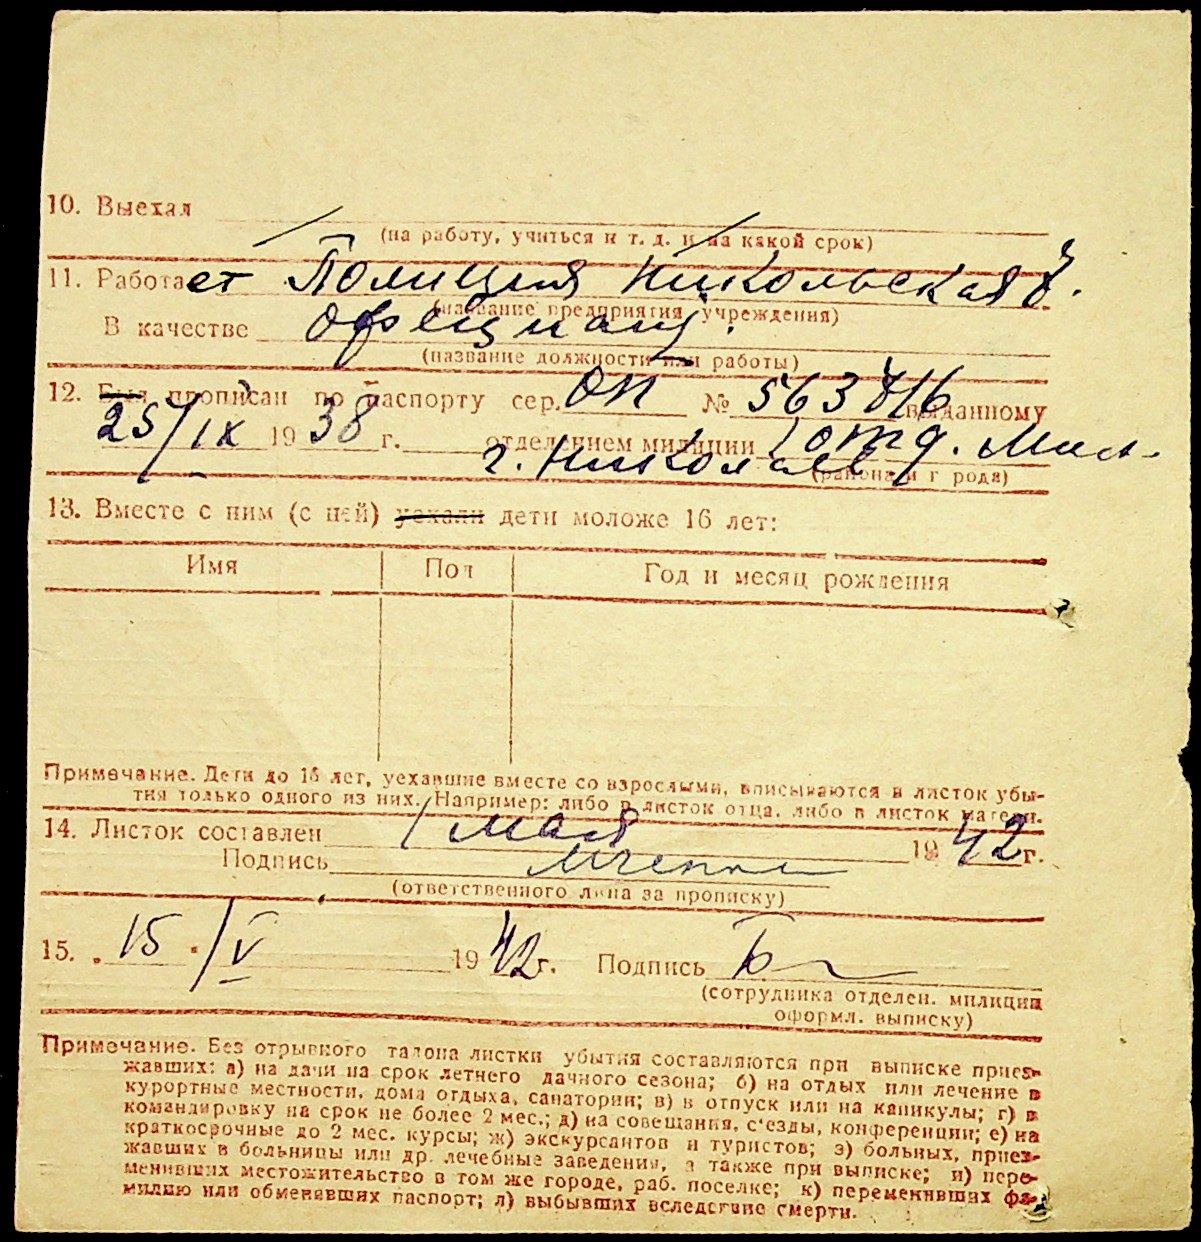 10. Выехал
(на работу, учиться и т. д. и на какой срок)
11. Работает Полиция Никольская 8.
(название предприятия учреждения)
В качестве
(название должности или работы)
12. Был прописан по паспорту сер. ОП № 563 716 выданному
25/IX 1938 г. отделением милиции 1 отд. Мил.
г. Николаев
(района и города)
13. Вместе с ним (с ней) уехали дети моложе 16 лет:
Имя Пол Год и месяц рождения
Примечание. Дети до 16 лет, уехавшие вместе со взрослыми, вписываются в листок убы-
тия только одного из них. Например: либо в листок отца, либо в листок матери.
14. Листок составлен 1 мая 1942 г.
Подпись
(ответственного лица за прописку)
15. „15“/V 1942 г. Подпись
(сотрудника отделен. милиции
оформл. выписку)
Примечание. Без отрывного талона листки убытия составляются при выписке приез-
жавших: а) на дачи на срок летнего дачного сезона; б) на отдых или лечение в
курортные местности, дома отдыха, санатории; в) в отпуск или на каникулы; г) в
командировку на срок не более 2 мес.; д) на совещания, с'езды, конференции; е) на
краткосрочные до 2 мес. курсы; ж) экскурсантов и туристов; з) больных, приез-
жавших в больницы или др. лечебные заведения, а также при выписке; и) пере-
менивших местожительство в том же городе, раб. поселке; к) переменивших фа-
милию или обменявших паспорт; л) выбывших вследствие смерти.